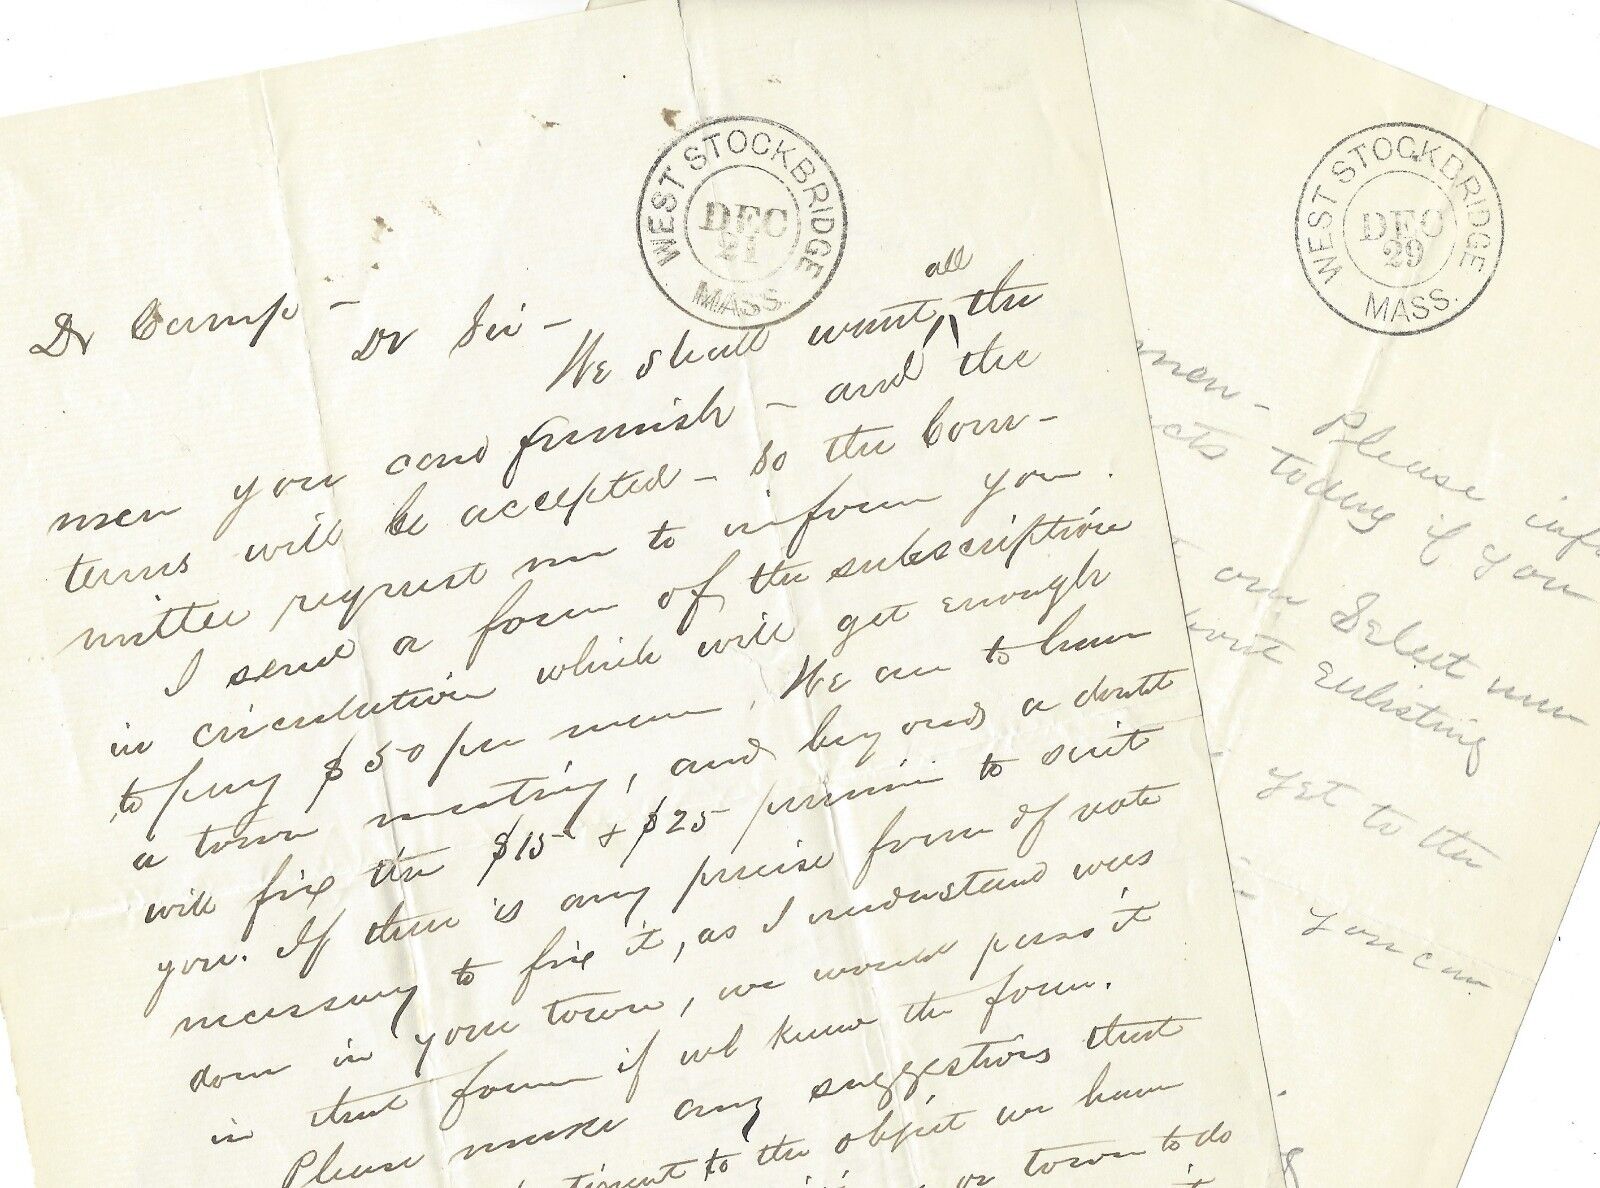 WEST STOCKBRIDGE
DEC
21
MASS.
Dr Camp –
Dr Sir –
We shall want all the
men you can furnish – and the
terms will be accepted – So the Com-
mittee request me to inform you.
I send a form of the subscription
in circulation which will get enough
to pay $50 per man. We are to have
a town meeting, and beyond a doubt
will fix the $15 + $25 premium to suit
you. If there is any precise form of vote
necessary to fix it, as I understand was
done in your town, we would pass it
in that form if we knew the form.
Please make any suggestions that
to the object we have
or town to do
WEST STOCKBRIDGE
DEC
29
MASS.
men – Please
today if you
our Select men
Enlisting
yet to the
you can